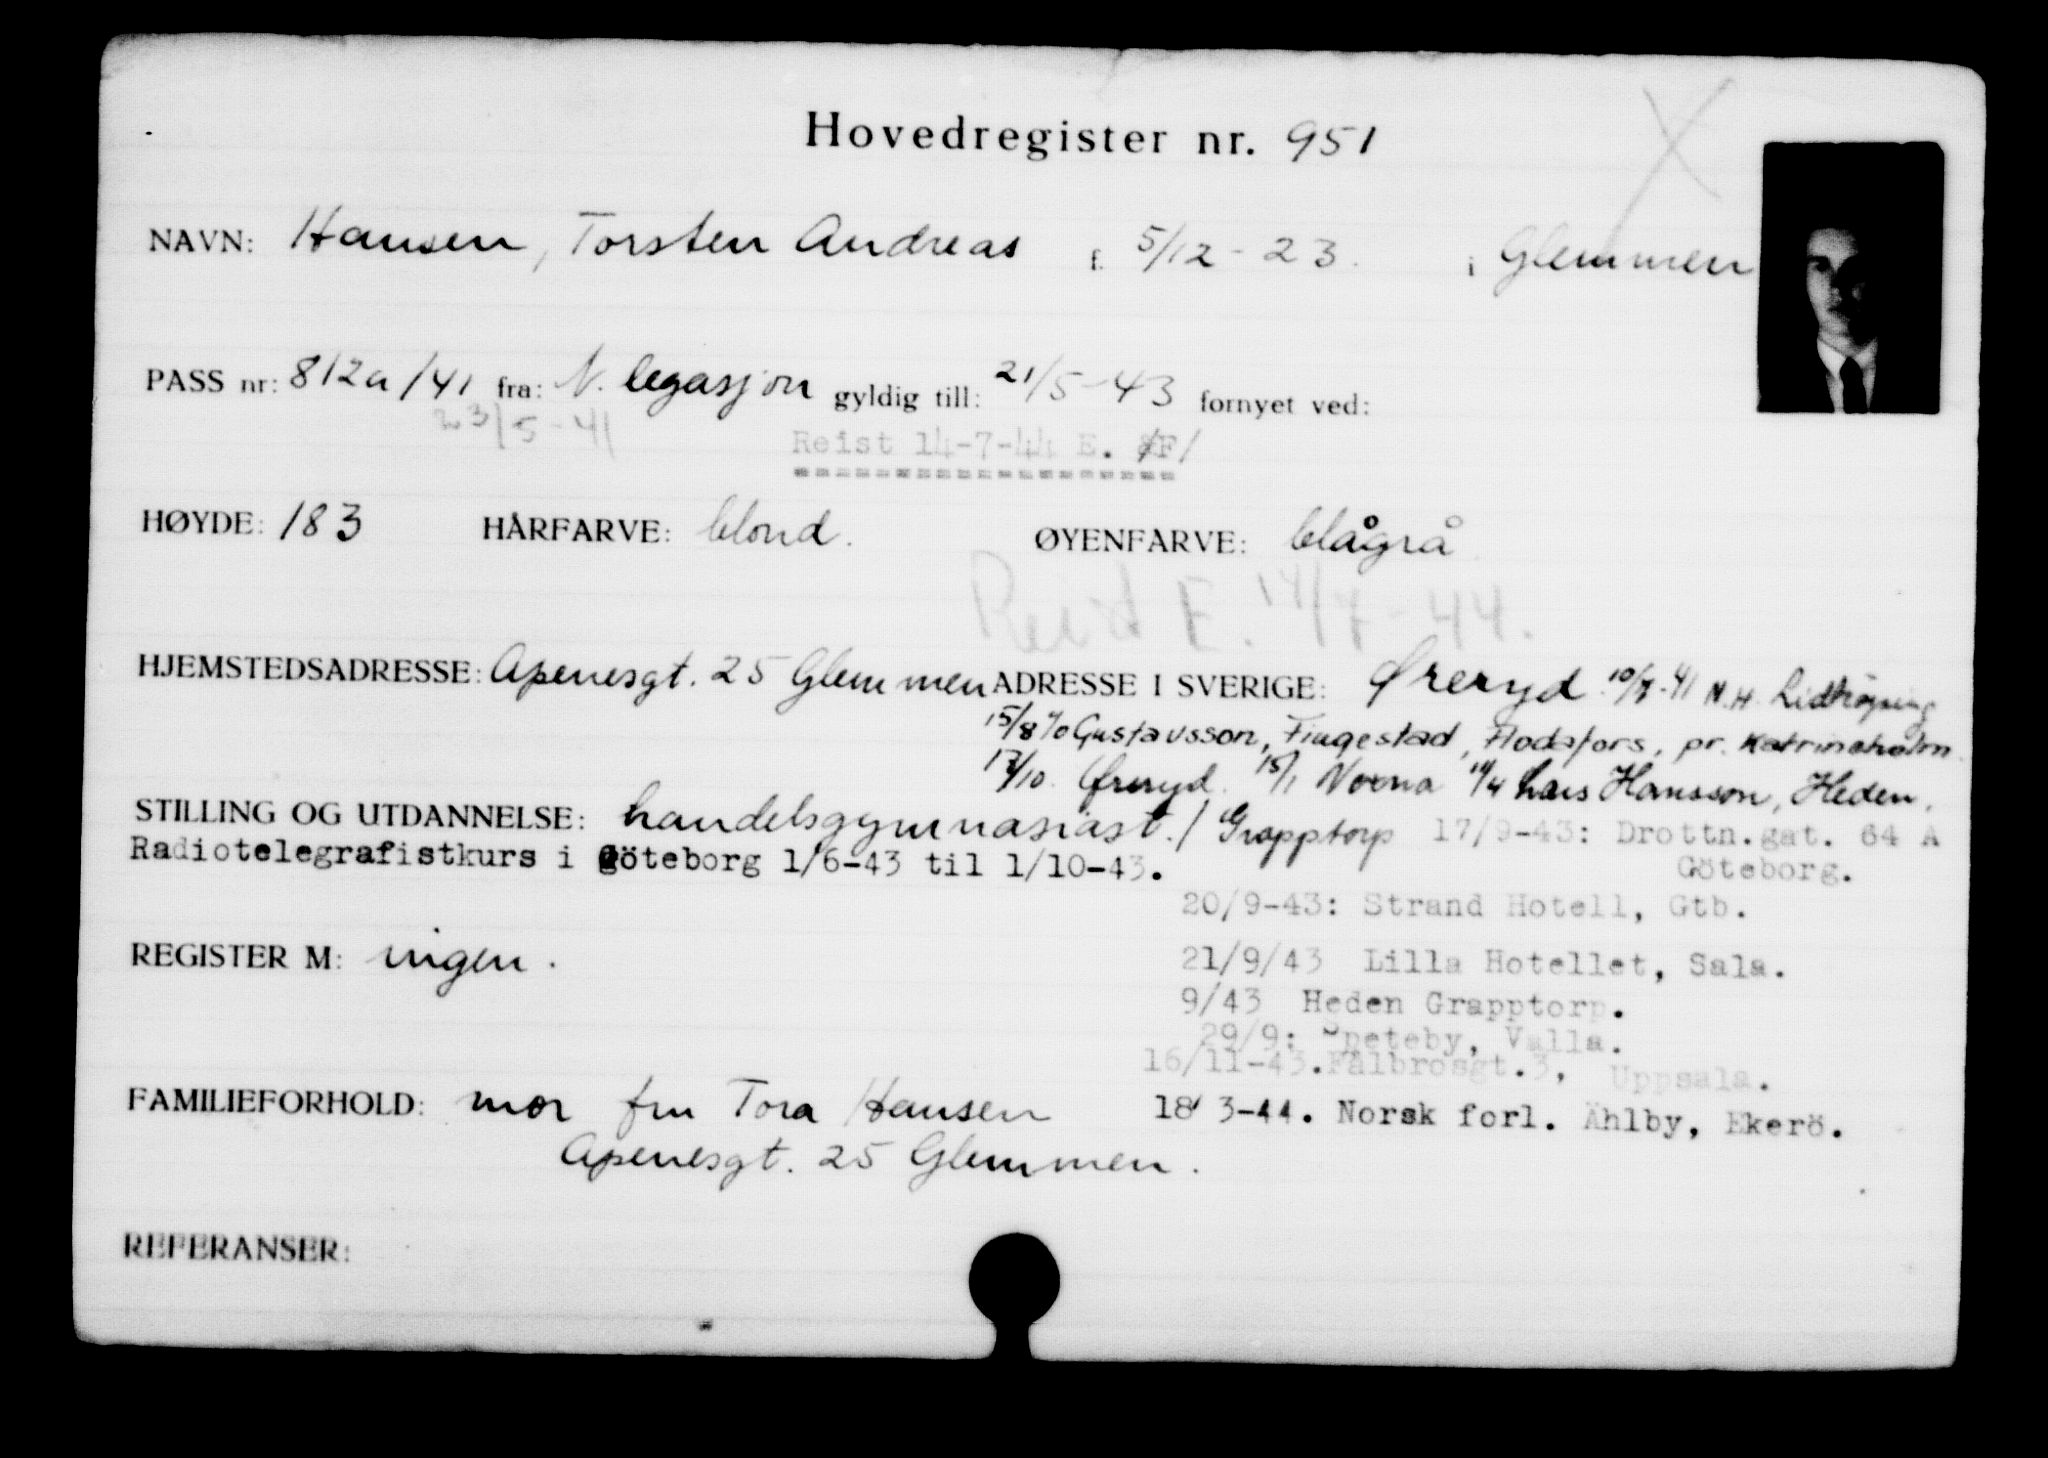 Hovedregister nr. 951
NAVN: Hansen, Torsten Andreas f. 5/12 - 23. i Glemmen
PASS nr: 812a/41 fra: N. legasjon gyldig till: 21/5 - 43 fornyet ved:
23/5 - 41
Reist 14-7-44 E. /F/
HØYDE: 183 HÅRFARVE: blond. ØYENFARVE: blågrå
Reist E. 14/7 - 44.
HJEMSTEDSADRESSE: Apenesgt. 25 Glemmen ADRESSE I SVERIGE: Øreryd. 10/7-41 N.H. Lidköping
15/8 c/o Gustavsson, Fingestad, Flodafors, pr. Katrineholm.
17/10. Øreryd. 15/1 Norna 14/4 Lars Hansson, Heden,
STILLING OG UTDANNELSE: handelsgymnasiast. / Grapptorp 17/9-43: Drottn.gat. 64 A
Radiotelegrafistkurs i Göteborg 1/6-43 til 1/10-43. Göteborg.
20/9-43: Strand Hotell, Gtb.
REGISTER M: ingen. 21/9/43 Lilla Hotellet, Sala.
9/43 Heden Grapptorp.
29/9: Speteby, Valla.
16/11-43. Fålbrosgt. 3, Uppsala.
FAMILIEFORHOLD: mor fru Tora Hansen 18/ 3-44. Norsk forl. Ählby, Ekerö.
Apenesgt. 25 Glemmen.
REFERANSER: